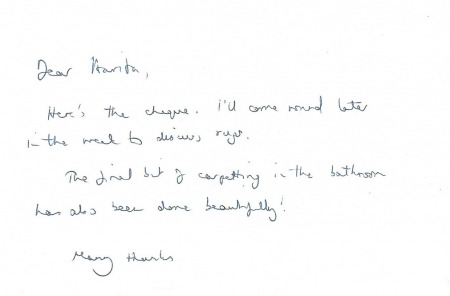 Dear Harita,
Here's the cheque. I'll come round later
in the week to discuss rugs.
The final bit of carpetting in the bathroom
has also been done beautifully!
Many thanks